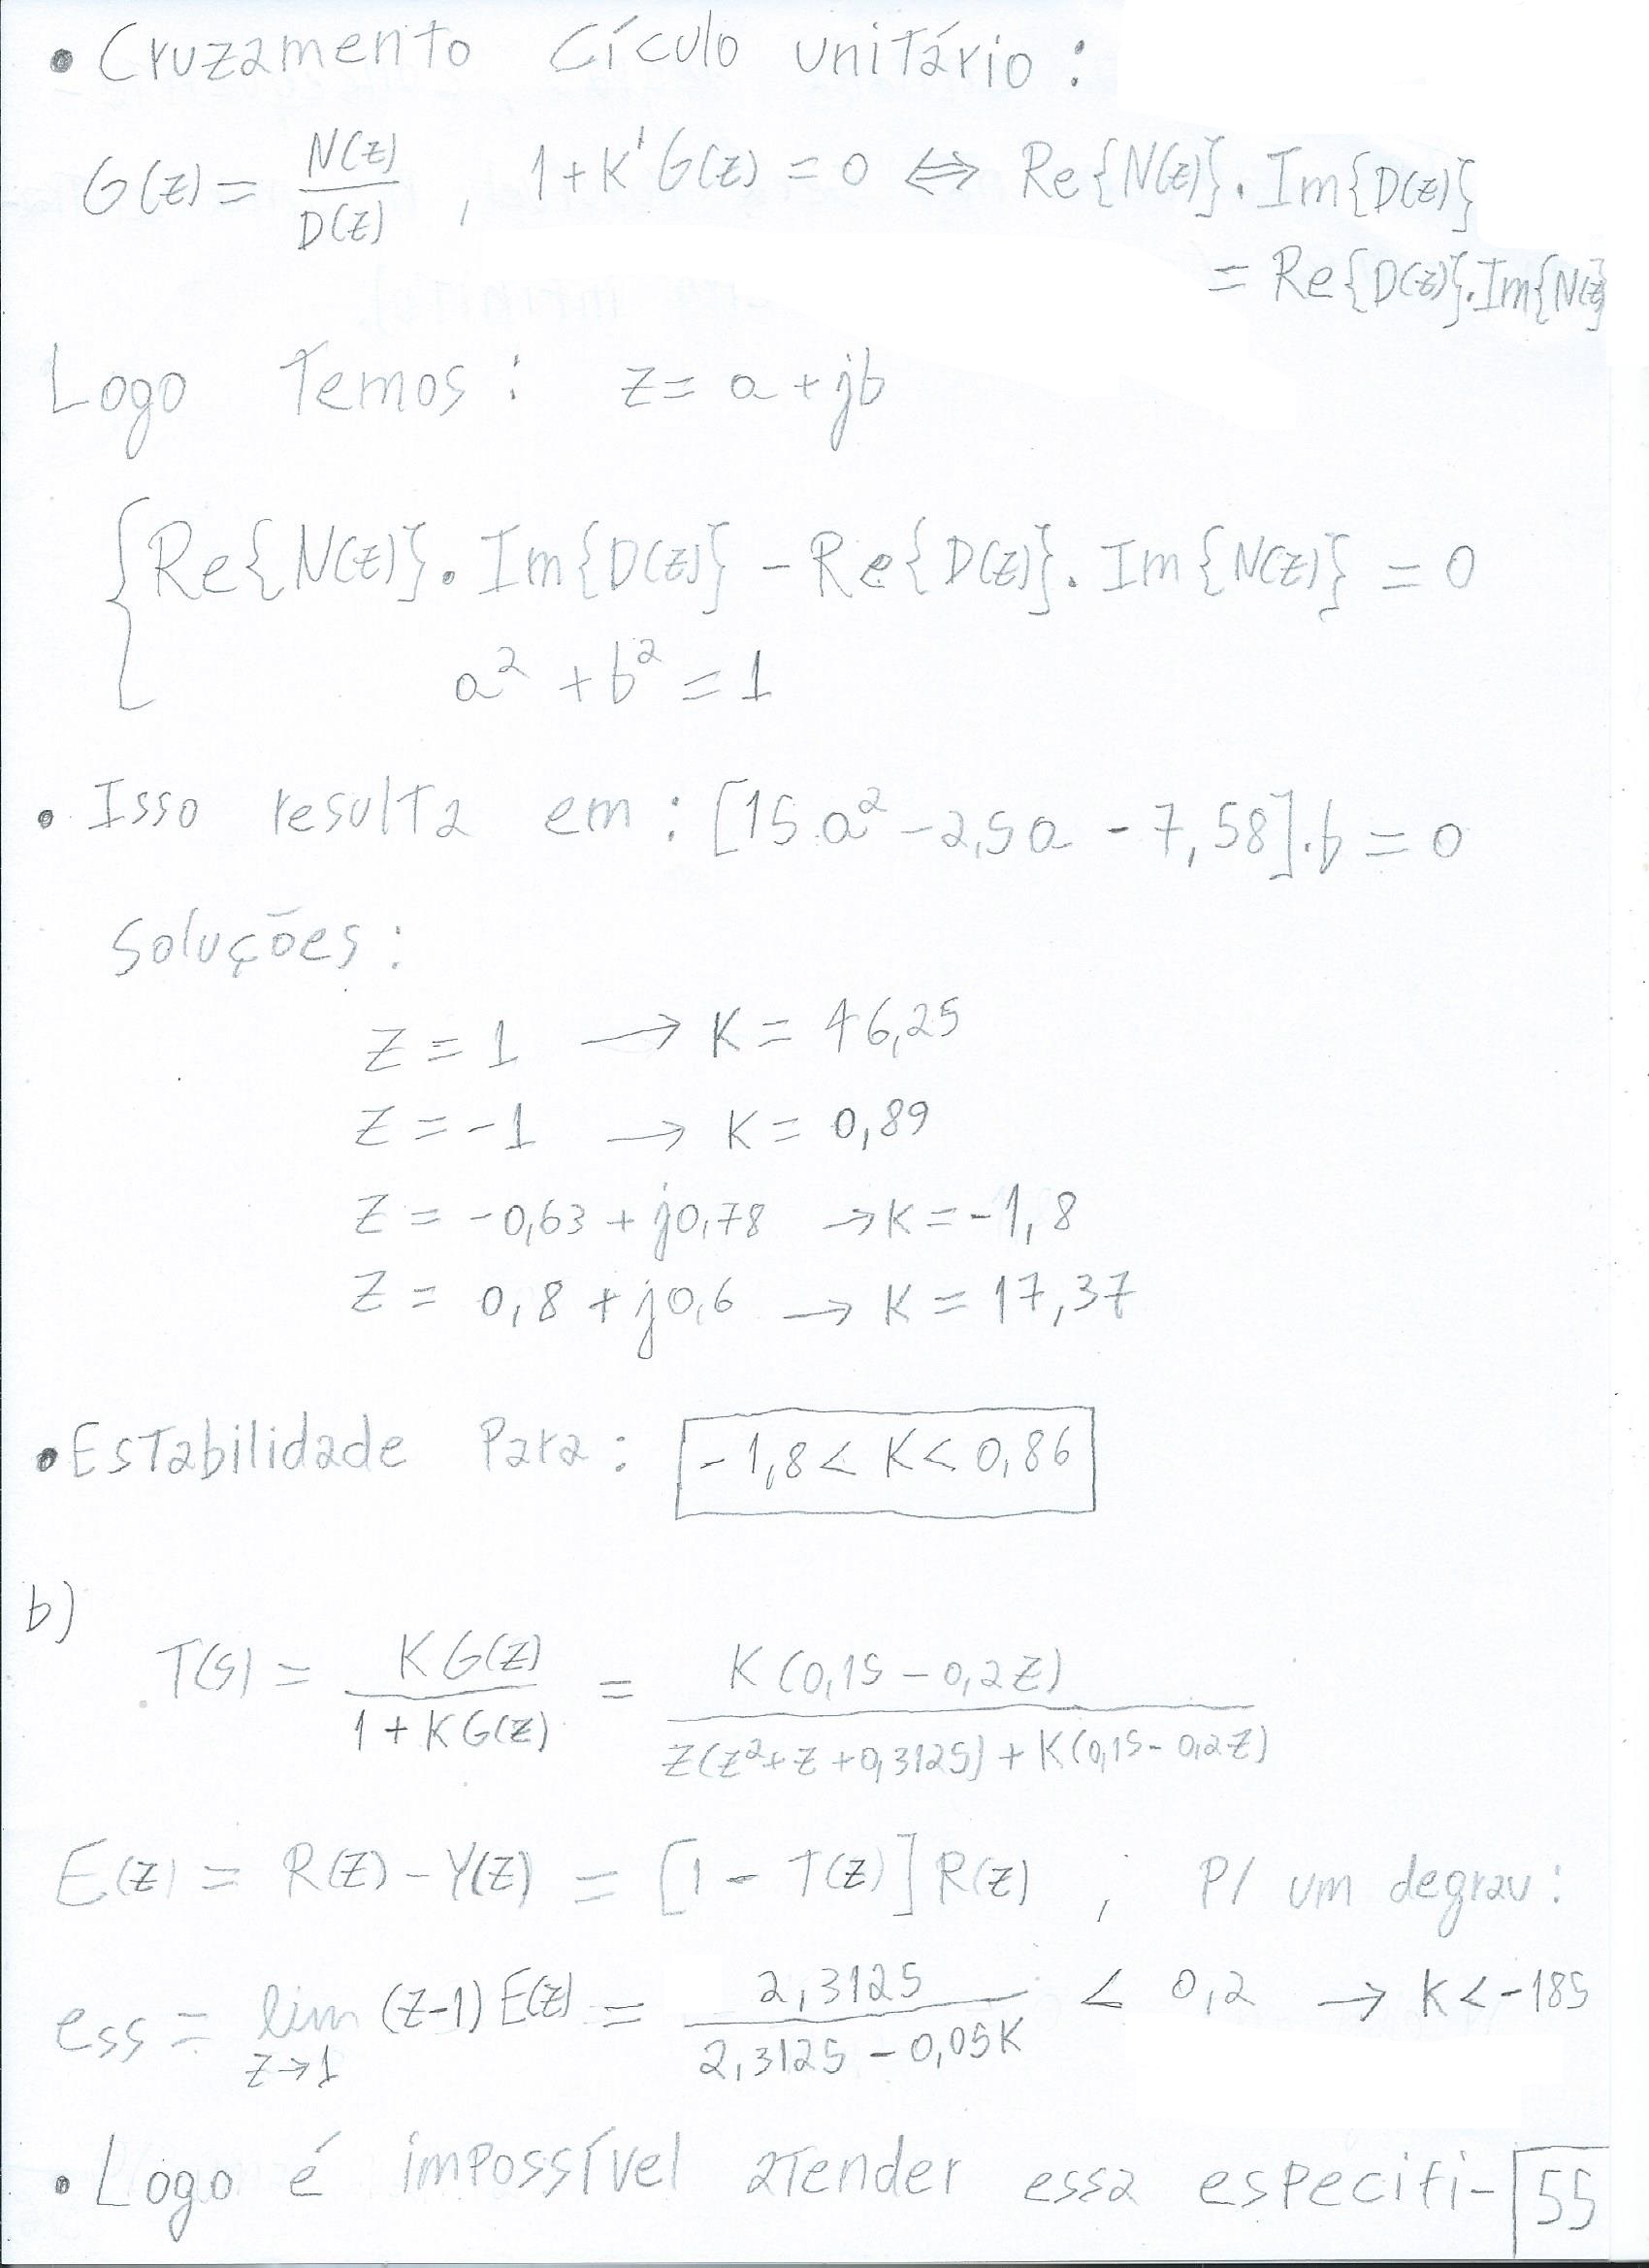 • Cruzamento Cículo unitário:
G(z) = N(z)/D(z) , 1 + K' G(z) = 0 ⇔ Re{N(z)}. Im{D(z)}
= Re{D(z)}.Im{N(z}
Logo Temos: z = a + jb
{ Re{N(z)}. Im{D(z)} - Re{D(z)}. Im{N(z)} = 0
a² + b² = 1
• Isso resulta em: [15 a² - 2,5a - 7,58].b = 0
Soluções:
z = 1 → K = 46,25
z = -1 → K = 0,89
z = -0,63 + j0,78 → K = -1,8
z = 0,8 + j0,6 → K = 17,37
• Estabilidade Para: -1,8 < K < 0,86
b)
T(s) = K G(z) / 1 + K G(z) = K (0,15 - 0,2z) / z(z² + z + 0,3125) + K(0,15 - 0,2z)
E(z) = R(z) - Y(z) = [1 - T(z)] R(z) , P/ um degrau:
ess = lim z→1 (z-1) E(z) = 2,3125 / 2,3125 - 0,05K < 0,2 → K < -185
• Logo é impossível atender essa especifi- 55